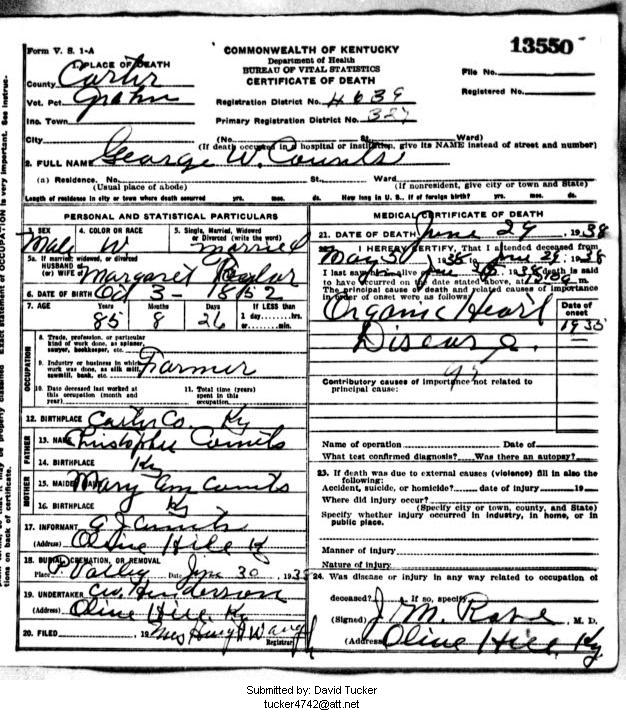 Form V. S. 1-A
COMMONWEALTH OF KENTUCKY
Department of Health
BUREAU OF VITAL STATISTICS
CERTIFICATE OF DEATH
13550
File No.
Registered No.
1. PLACE OF DEATH
County Carter
Vot. Pct. Grahn
Inc. Town
City
Registration District No. 4639
Primary Registration District No. 327
(No. St. Ward)
(If death occurred in a hospital or institution, give its NAME instead of street and number)
2. FULL NAME George W. Counts
(a) Residence. No. St., Ward
(Usual place of abode) (If nonresident, give city or town and State)
Length of residence in city or town where death occurred yrs. mos. ds. How long in U. S., if of foreign birth? yrs. mos. ds.
PERSONAL AND STATISTICAL PARTICULARS
3. SEX 4. COLOR OR RACE 5. Single, Married, Widowed or Divorced (write the word)
Male W married
5a. If married, widowed, or divorced
HUSBAND of
(or) WIFE of Margaret
6. DATE OF BIRTH Oct 3 - 1852
7. AGE Years Months Days If LESS than
85 8 26 1 day......hrs.
or......min.
OCCUPATION
8. Trade, profession, or particular
kind of work done, as spinner,
sawyer, bookkeeper, etc.
Farmer
9. Industry or business in which
work was done, as silk mill,
sawmill, bank, etc.
10. Date deceased last worked at
this occupation (month and
year)
11. Total time (years)
spent in this
occupation
12. BIRTHPLACE Carter Co. Ky
FATHER
13. NAME Christopher Counts
14. BIRTHPLACE Ky
MOTHER
15. MAIDEN NAME Mary Ann Counts
16. BIRTHPLACE Ky
17. INFORMANT Counts
(Address) Olive Hill Ky
18. BURIAL, CREMATION, OR REMOVAL
Place P. Valley Date June 30, 1938
19. UNDERTAKER Henderson
(Address) Olive Hill, Ky
20. FILED 19 Mrs
Registrar
MEDICAL CERTIFICATE OF DEATH
21. DATE OF DEATH June 29, 1938
22. I HEREBY CERTIFY, That I attended deceased from
May 30, 1938 to June 29, 1938
I last saw him alive June 1938 death is said
to have occurred on the date stated above, at m.
The principal cause of death and related causes of importance
in order of onset were as follows:
Date of
onset
Organic Heart 1935
Disease
Contributory causes of importance not related to
principal cause:
Name of operation Date of
What test confirmed diagnosis? Was there an autopsy?
23. If death was due to external causes (violence) fill in also the
following:
Accident, suicide, or homicide? date of injury 19
Where did injury occur?
(Specify city or town, county, and State)
Specify whether injury occurred in industry, in home, or in
public place.
Manner of injury
Nature of injury
24. Was disease or injury in any way related to occupation of
deceased? If so, specify
(Signed) J. M. Rose, M. D.
(Address) Olive Hill, Ky
Submitted by: David Tucker
tucker4742@att.net